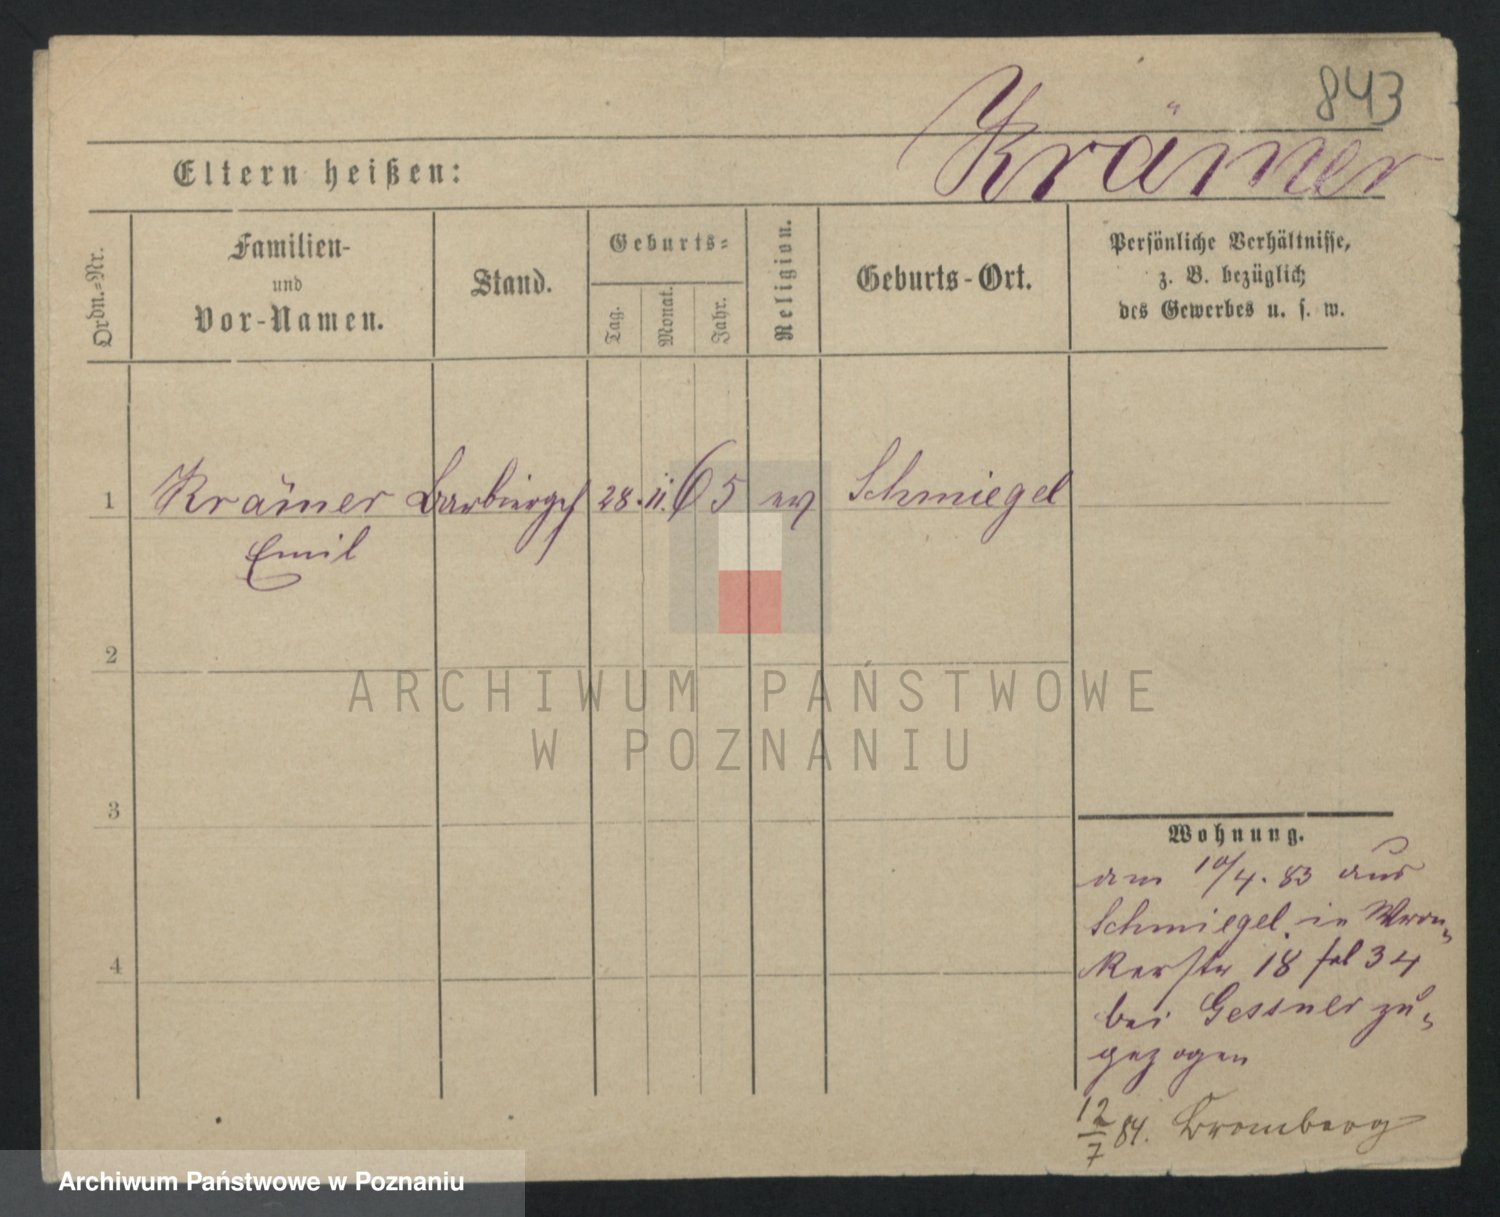 843
Krämer
Eltern heißen:
Ordn.=Nr.
Familien-
und
Vor-Namen.
Stand.
Geburts=
Tag.
Monat.
Jahr.
Religion.
Geburts-Ort.
Persönliche Verhältnisse,
z. B. bezüglich
des Gewerbes u. s. w.
1 Krämer Barbiergh 28. 11. 65 ev Schmiegel
Emil
2
ARCHIWUM PAŃSTWOWE
W POZNANIU
3
Wohnung.
am 10/4. 83 aus
Schmiegel. in Wron-
kerstr 18 fol 34
bei Gessner zu-
gezogen
4
12/7 84. Bromberg
Archiwum Państwowe w Poznaniu